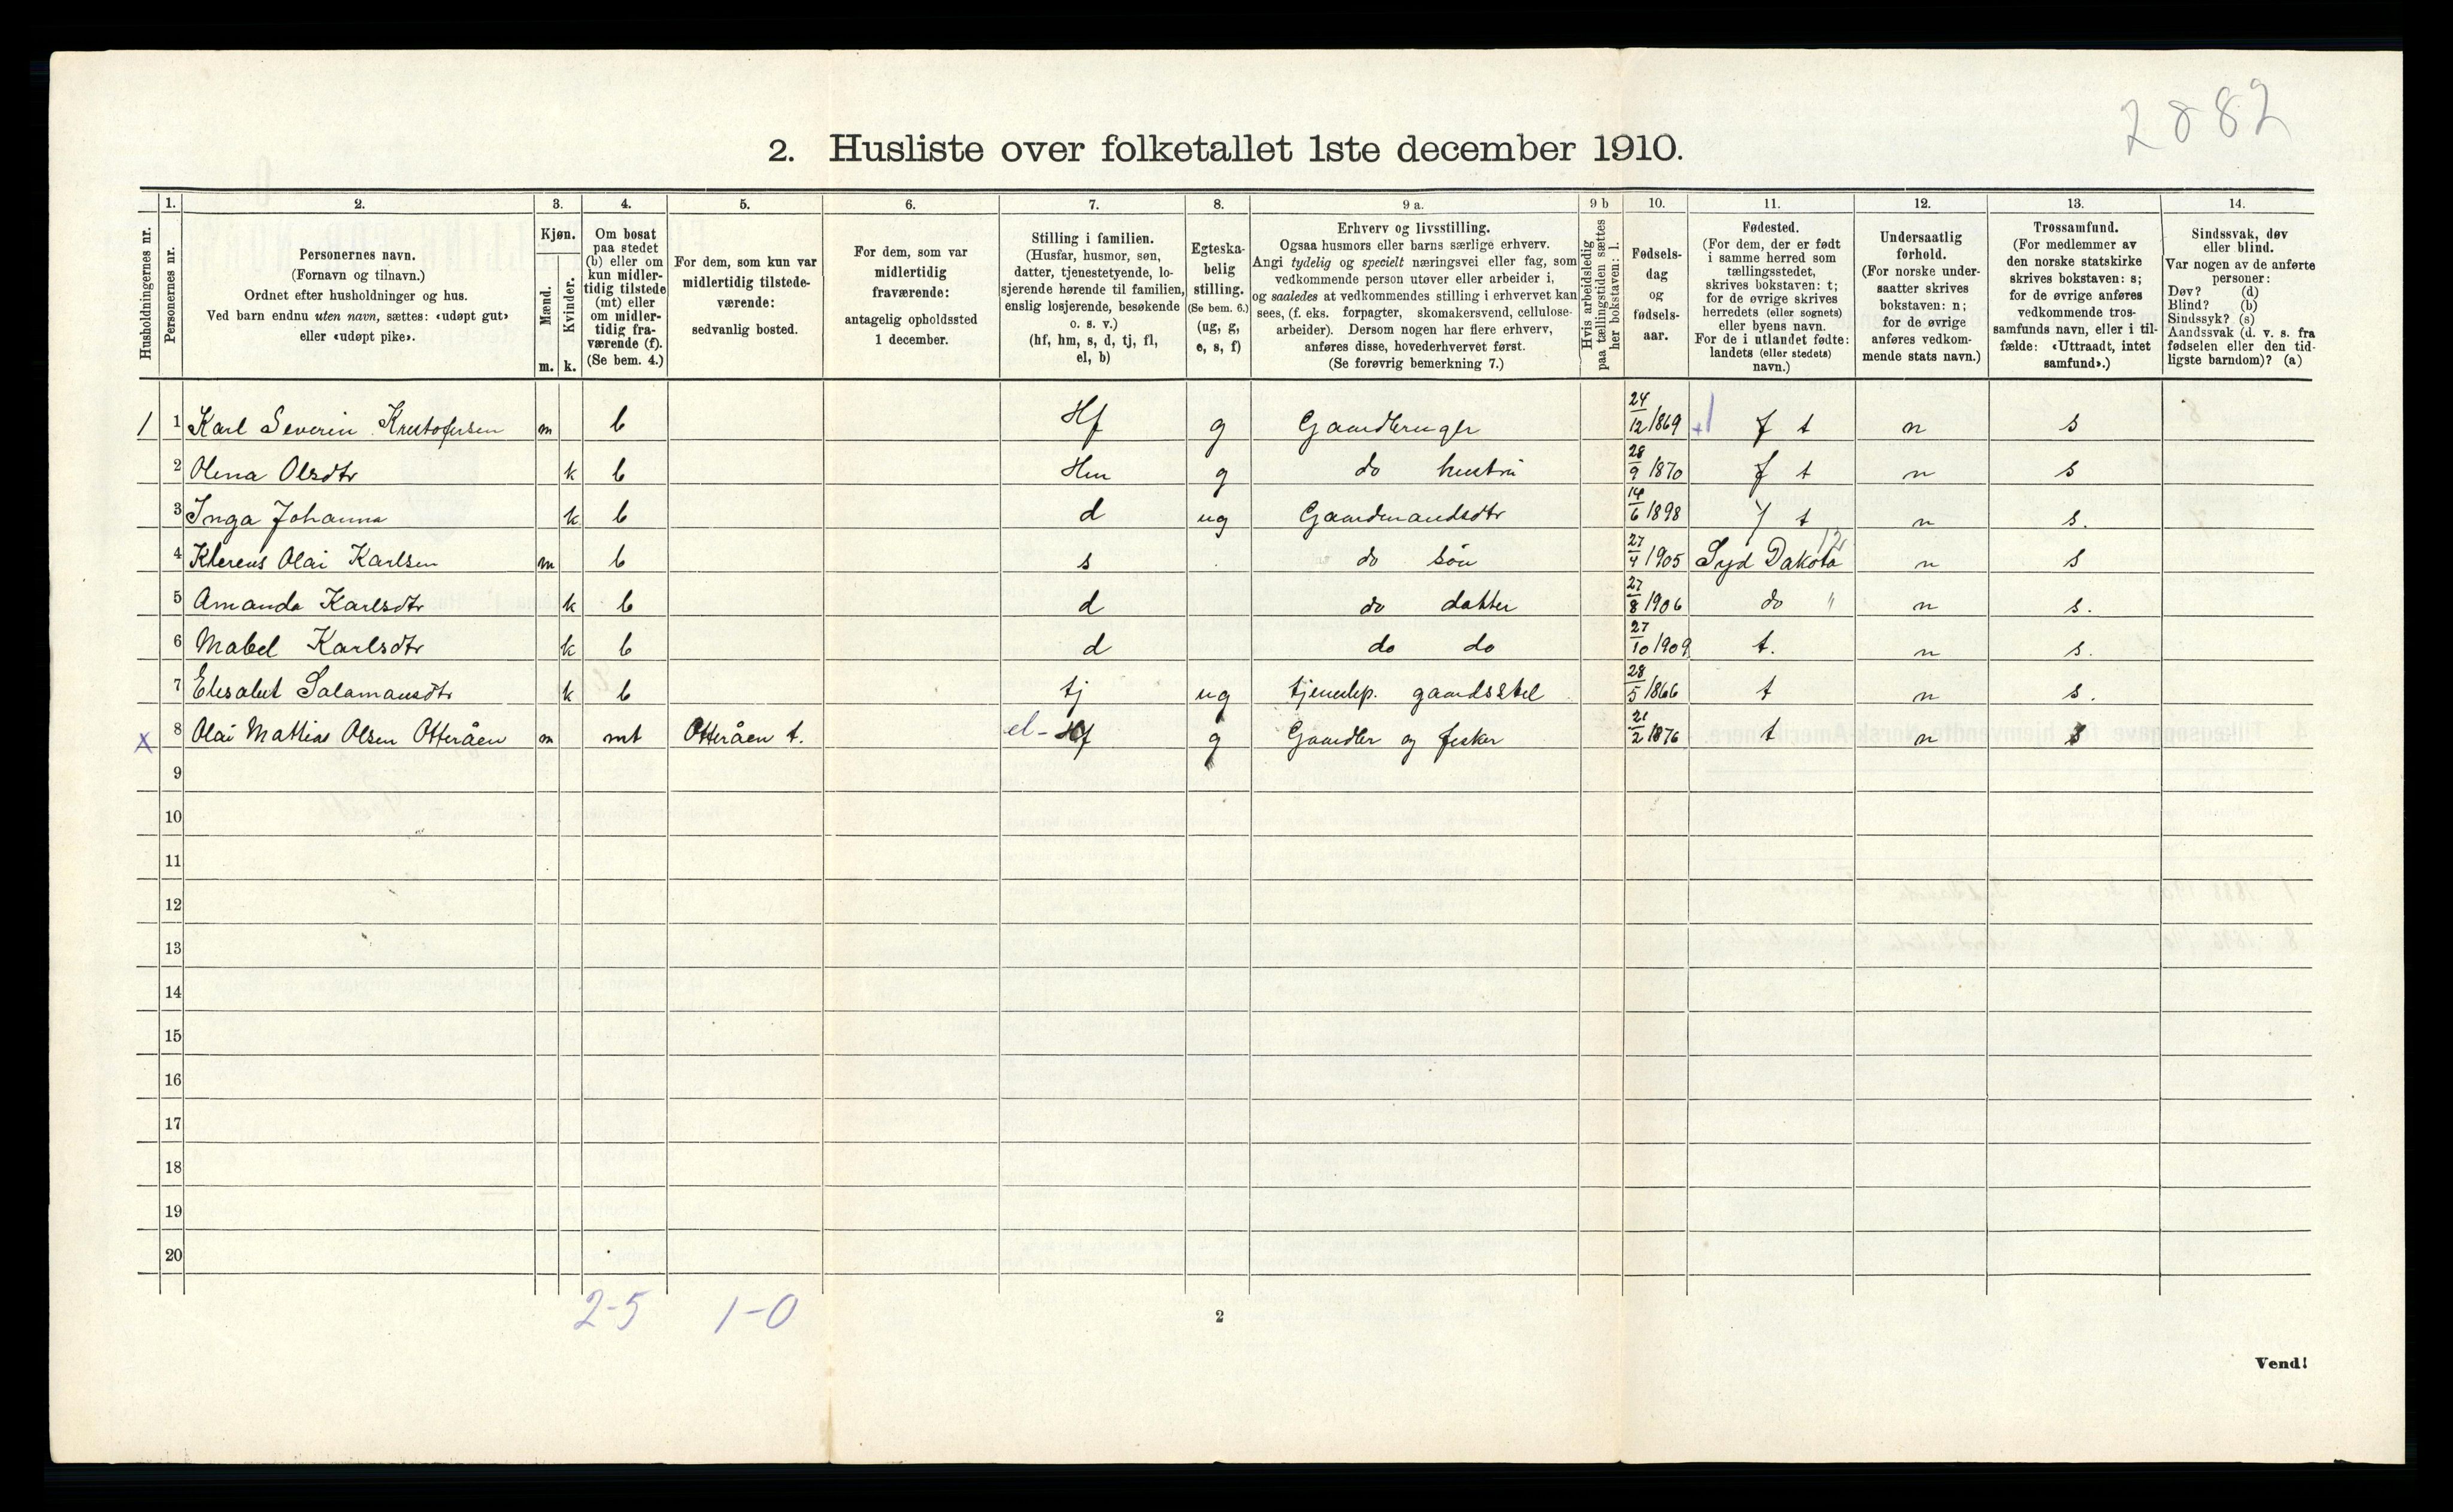 2882
2. Husliste over folketallet 1ste december 1910.
Husholdningernes nr.
1. Personernes nr.
2. Personernes navn. (Fornavn og tilnavn.) Ordnet efter husholdninger og hus. Ved barn endnu uten navn, sættes: «udøpt gut» eller «udøpt pike».
3. Kjøn. Mænd. m. Kvinder. k.
4. Om bosat paa stedet (b) eller om kun midlertidig tilstede (mt) eller om midlertidig fraværende (f). (Se bem. 4.)
5. For dem, som kun var midlertidig tilstedeværende: sedvanlig bosted.
6. For dem, som var midlertidig fraværende: antagelig opholdssted 1 december.
7. Stilling i familien. (Husfar, husmor, søn, datter, tjenestetyende, losjerende hørende til familien, enslig losjerende, besøkende o. s. v.) (hf, hm, s, d, tj, fl, el, b)
8. Egteskabelig stilling. (Se bem. 6.) (ug, g, e, s, f)
9 a. Erhverv og livsstilling. Ogsaa husmors eller barns særlige erhverv. Angi tydelig og specielt næringsvei eller fag, som vedkommende person utøver eller arbeider i, og saaledes at vedkommendes stilling i erhvervet kan sees, (f. eks. forpagter, skomakersvend, cellulosearbeider). Dersom nogen har flere erhverv, anføres disse, hovederhvervet først. (Se forøvrig bemerkning 7.)
9 b Hvis arbeidsledig paa tællingstiden sættes her bokstaven: l.
10. Fødselsdag og fødselsaar.
11. Fødested. (For dem, der er født i samme herred som tællingsstedet, skrives bokstaven: t; for de øvrige skrives herredets (eller sognets) eller byens navn. For de i utlandet fødte: landets (eller stedets) navn.)
12. Undersaatlig forhold. (For norske undersaatter skrives bokstaven: n; for de øvrige anføres vedkommende stats navn.)
13. Trossamfund. (For medlemmer av den norske statskirke skrives bokstaven: s; for de øvrige anføres vedkommende trossamfunds navn, eller i tilfælde: «Uttraadt, intet samfund».)
14. Sindssvak, døv eller blind. Var nogen av de anførte personer: Døv? (d) Blind? (b) Sindssyk? (s) Aandssvak (d. v. s. fra fødselen eller den tidligste barndom)? (a)
1 1 Karl Severin Kristofersen m b Hf g Gaardbruger 24/12 1869 t n s
2 Olena Olsdtr k b Hm g do hustru 28/9 1870 t n s
3 Inga Johanna k b d ug Gaardmandsdtr 14/6 1898 t n s.
4 Klerens Olai Karlsen m b s do søn 27/4 1905 Syd Dakota 12 n s
5 Amanda Karlsdtr k b d do datter 27/8 1906 do " n s.
6 Mabel Karlsdtr k b d do do 27/10 1909 t. n s.
7 Elisabet Salamansdtr k b tj ug tjenestep. gaardsstel 28/5 1866 t n s.
X 8 Olai Mathias Olsen Otteråen m mt Otteråen t. el- Hf g Gaardbr og fisker 21/2 1876 t n s
9
10
11
12
13
14
15
16
17
18
19
20
2-5 1-0
2
Vend!